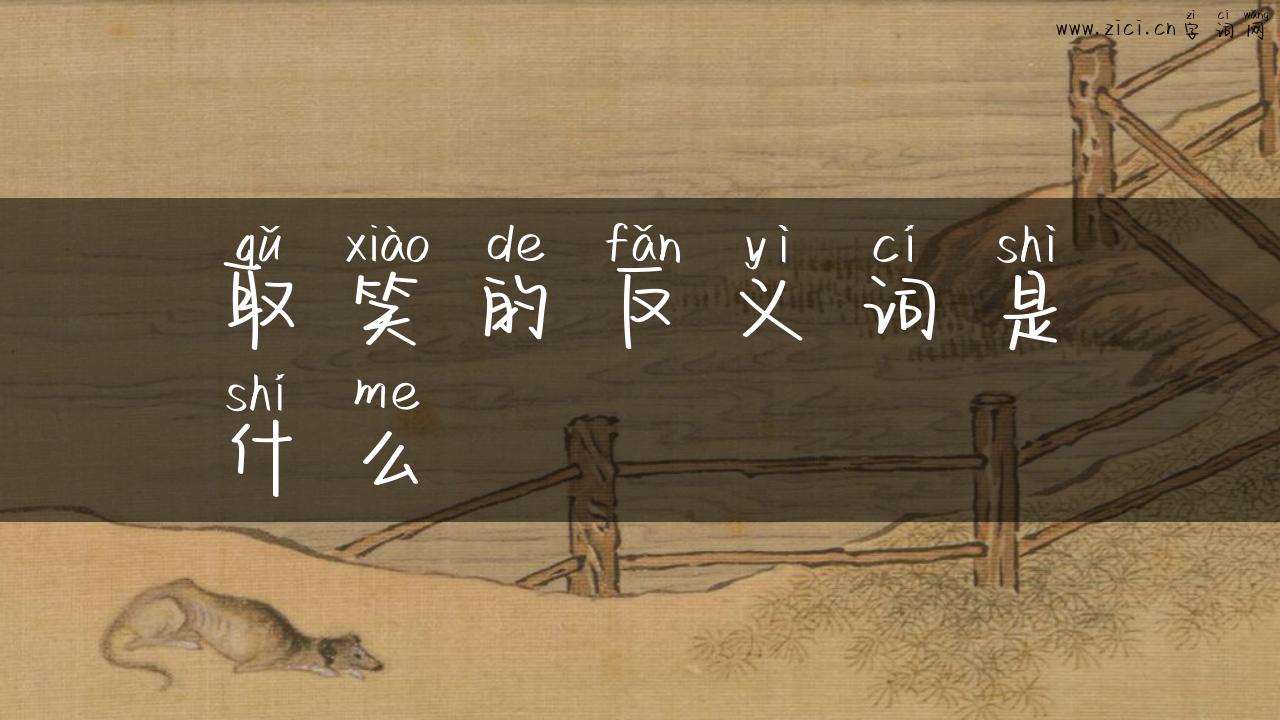 zì cí wǎng
www.zici.cn 字词网
qǔ xiào de fǎn yì cí shì
取笑的反义词是
shí me
什么